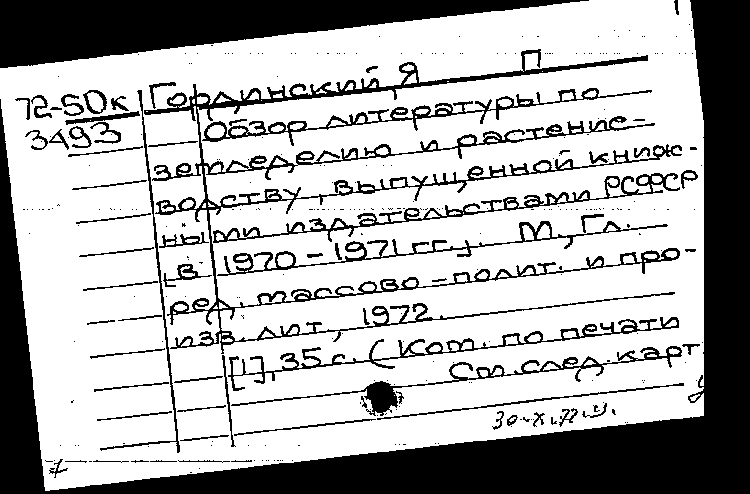 72-50к Гординский, Я П
3493 Обзор литературы по
земледелию и растение-
водству, выпущенной книж-
ными издательствами РСФСР
[в 1970-1971 гг.]. М., Гл.
ред. массово-полит. и про-
изв. лит., 1972.
[1], 35 с. (Ком. по печати
См. след. карт